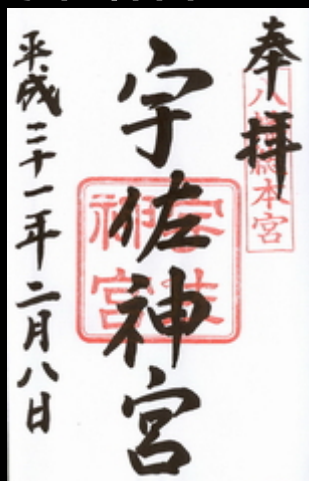 奉拝
八幡総本宮
宇佐神宮
宇佐
神宮
平成二十一年二月八日